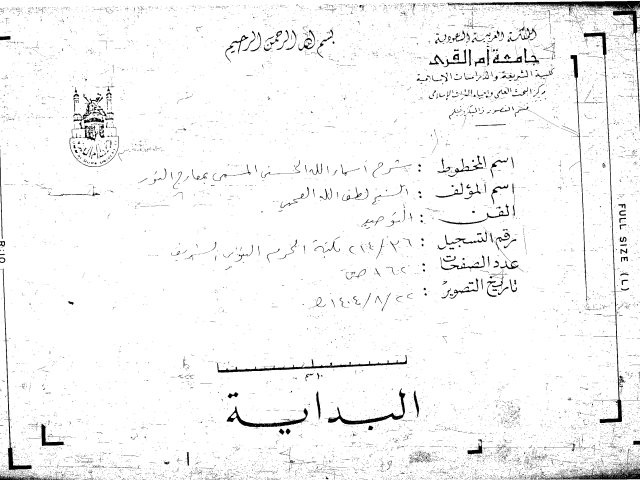 بسم الله الرحمن الرحيم
المملكة العربية السعودية
جامعة أم القرى
كلية الشريعة والدراسات الإسلامية
مركز البحث العلمي وإحياء التراث الإسلامي
قسم التصوير
اسم المخطوط : شرح أسماء الله الحسنى المسمى بمعارج النور
اسم المؤلف : الشيخ لطف الله
الفن : التوحيد
رقم التسجيل : ٢١٤/٣٦ مكتبة الحرم النبوي الشريف
عدد الصفحات : ١٦٢ ص
تاريخ التصوير : ١٤٠٤/٨/٢٢ هـ
البداية
FULL SIZE (L)